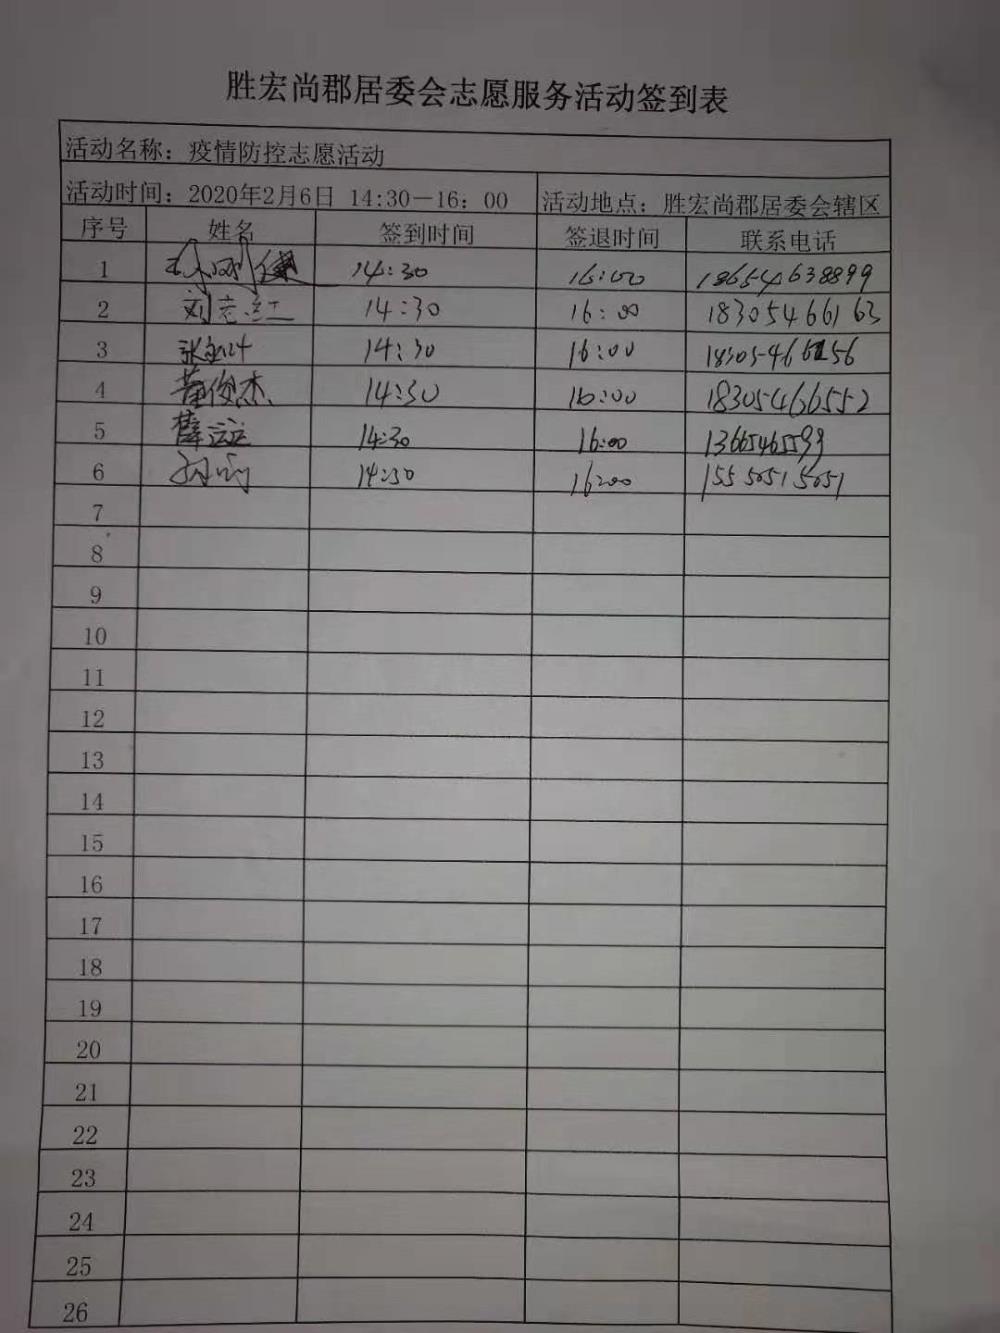 胜宏尚郡居委会志愿服务活动签到表
活动名称：疫情防控志愿活动
活动时间：2020年2月6日 14:30－16：00 活动地点：胜宏尚郡居委会辖区
序号 姓名 签到时间 签退时间 联系电话
1 14:30 16:00 18654638899
2 刘志红 14:30 16:00 18305466163
3 14:30 16:00
4 董俊杰 14:30 16:00 18305466552
5 薛运运 14:30 16:00 13665465599
6 14:30 16:00 15550515051
7
8
9
10
11
12
13
14
15
16
17
18
19
20
21
22
23
24
25
26